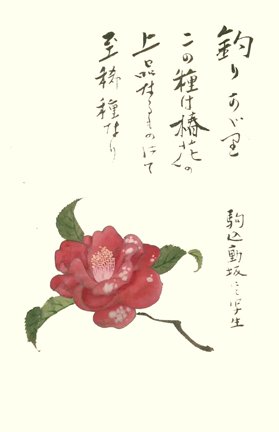 釣りあがり
この種は椿花の
上品なるものにて
至稀種なり
駒込動坂にて写生